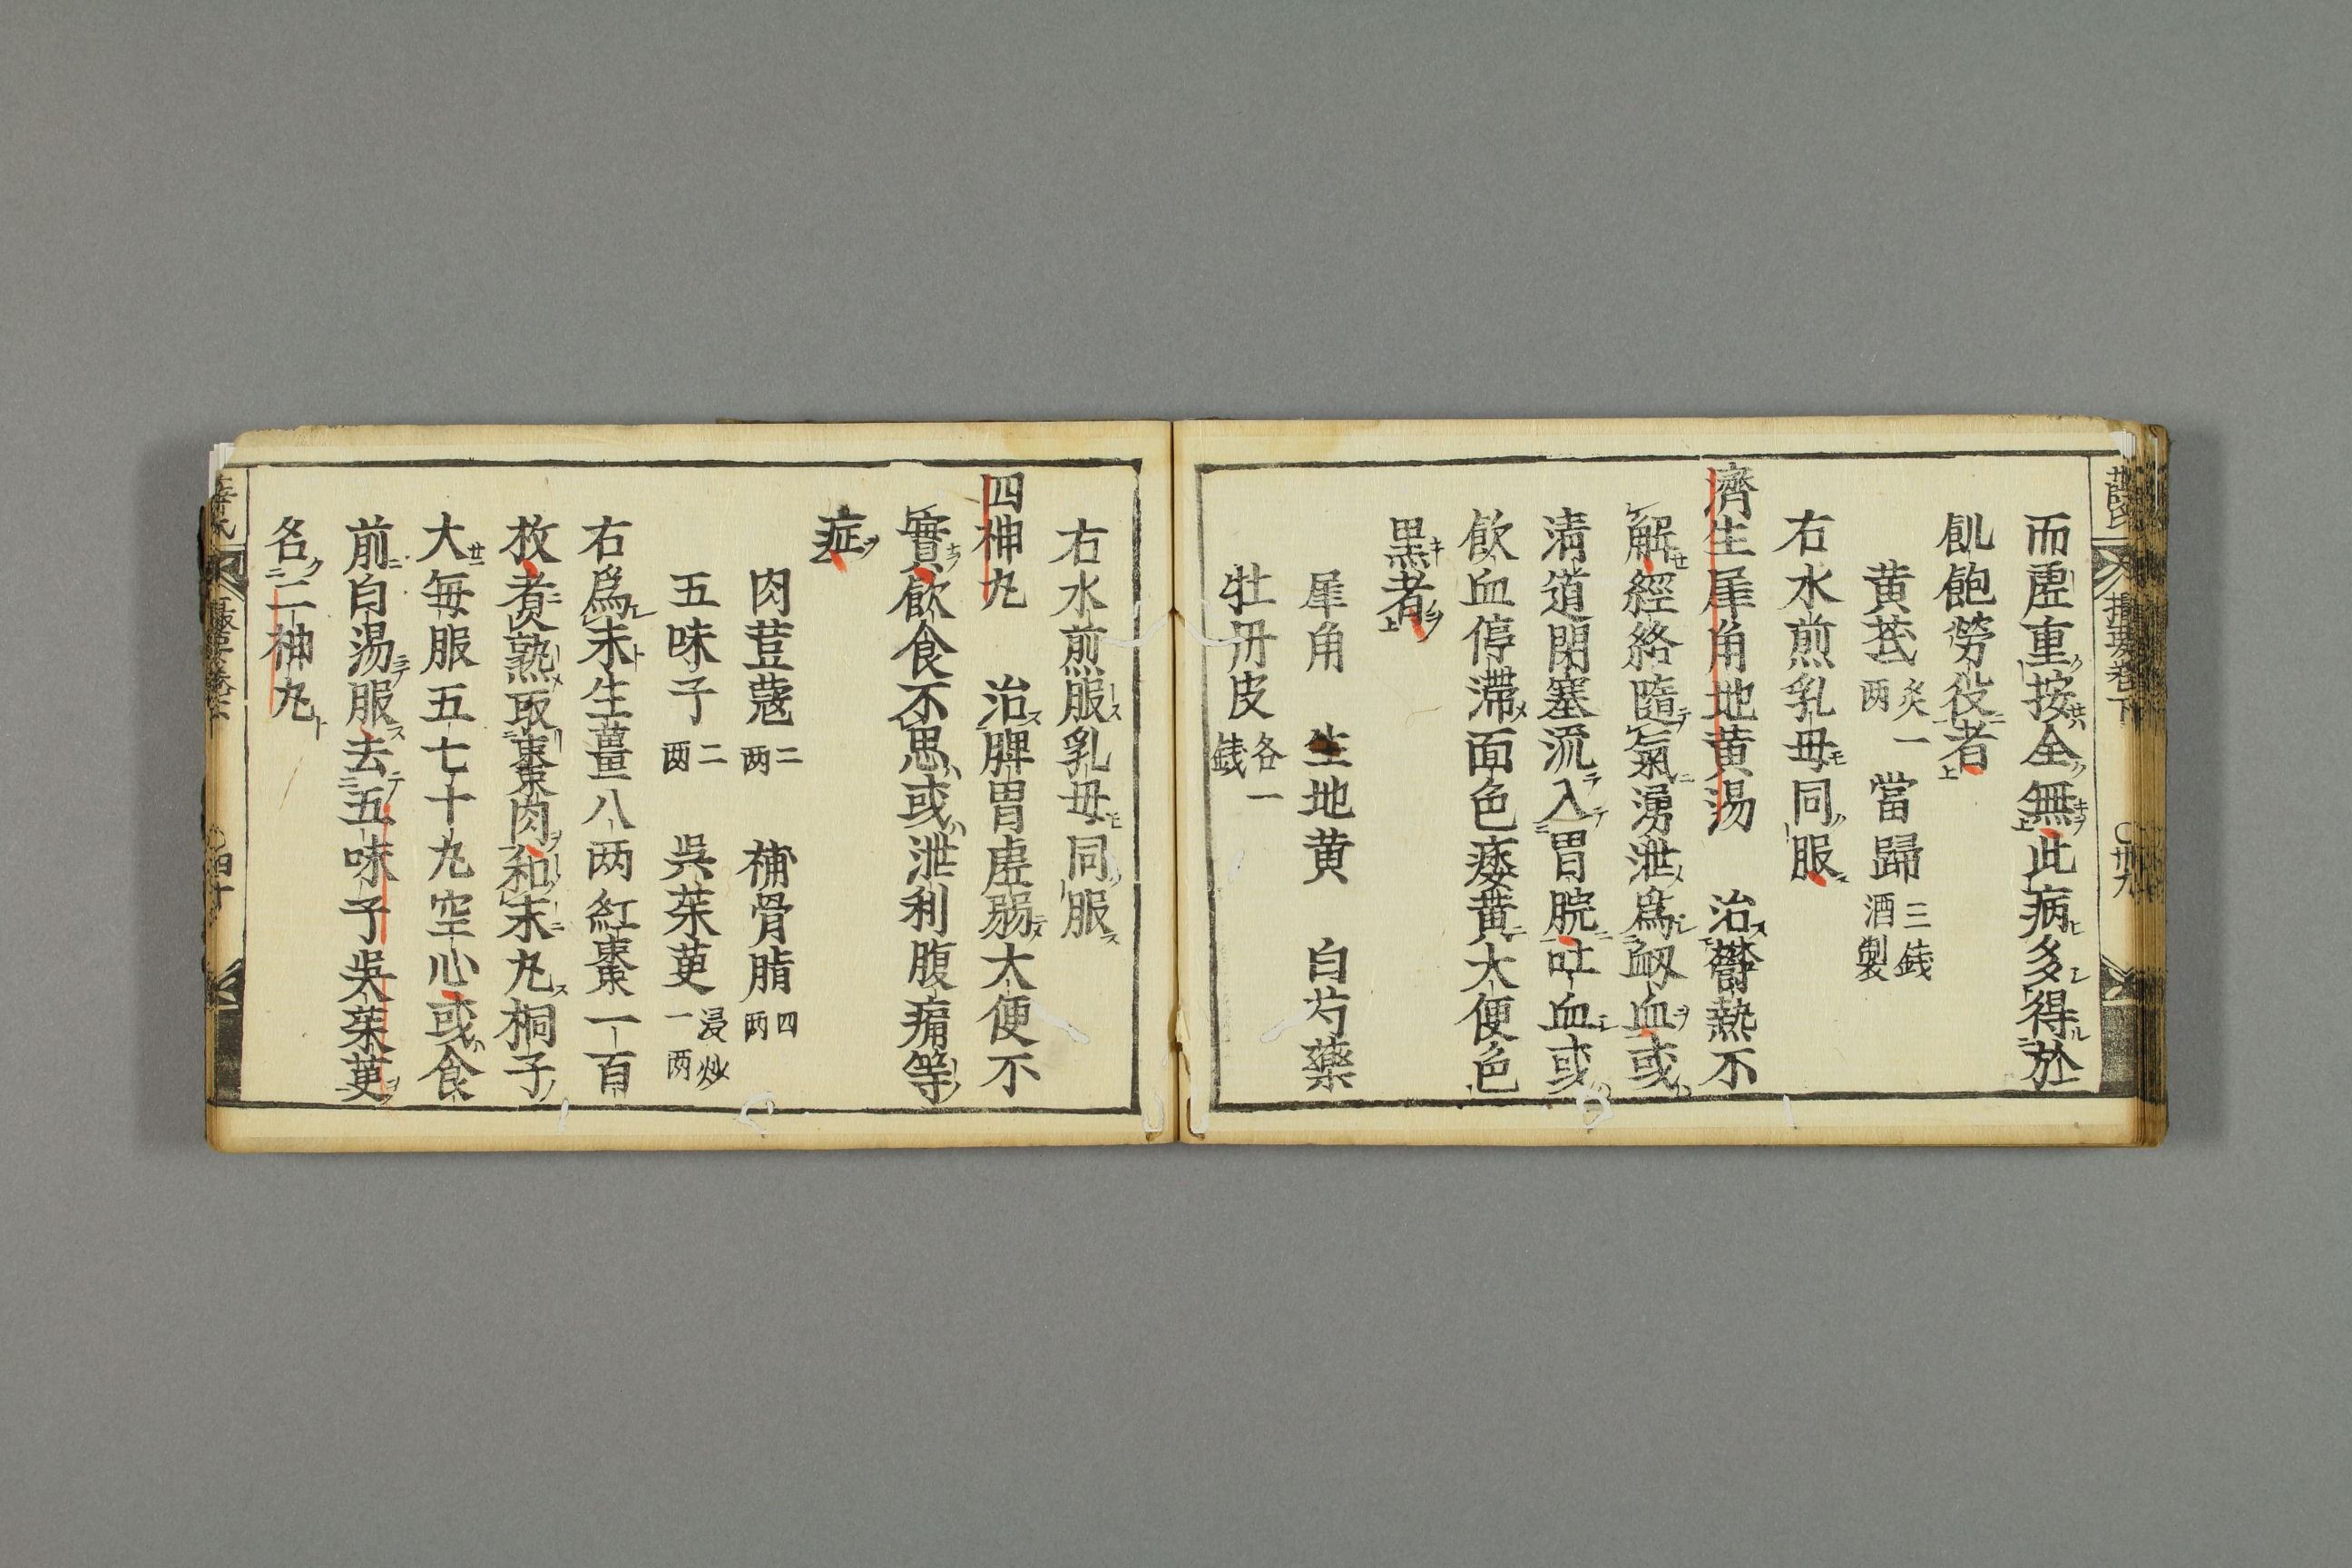 而虚重按全無此病多得於
飢飽勞役者
黄芪炙一两 當歸三錢酒製
右水煎乳毋同服
濟生犀角地黄湯 治鬱熱不
解經絡隨氣湧泄爲衂血或
清道閉塞流入胃脘吐血或
飲血停滯面色痿黄大便色
黒者
犀角 生地黄 白芍藥
牡丹皮各一錢
右水煎服乳毋同服
四神丸 治脾胃虚弱大便不
實飲食不思或泄利腹痛等
症
肉荳蔲二两 補骨脂四两
五味子二两 吳茱萸浸炒一两
右爲末生薑八两紅棗一百
枚煮熟取棗肉和末丸桐子
大毎服五七十丸空心或食
前白湯服去五味子吳茱萸
名二神丸